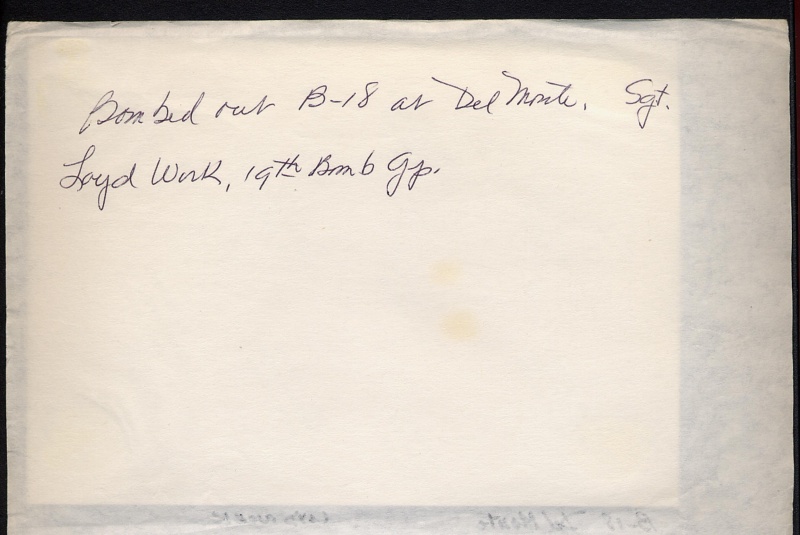 Bombed out B-18 at Del Monte. Sgt.
Loyd Work, 19th Bomb Gp.
B-18 Del Monte